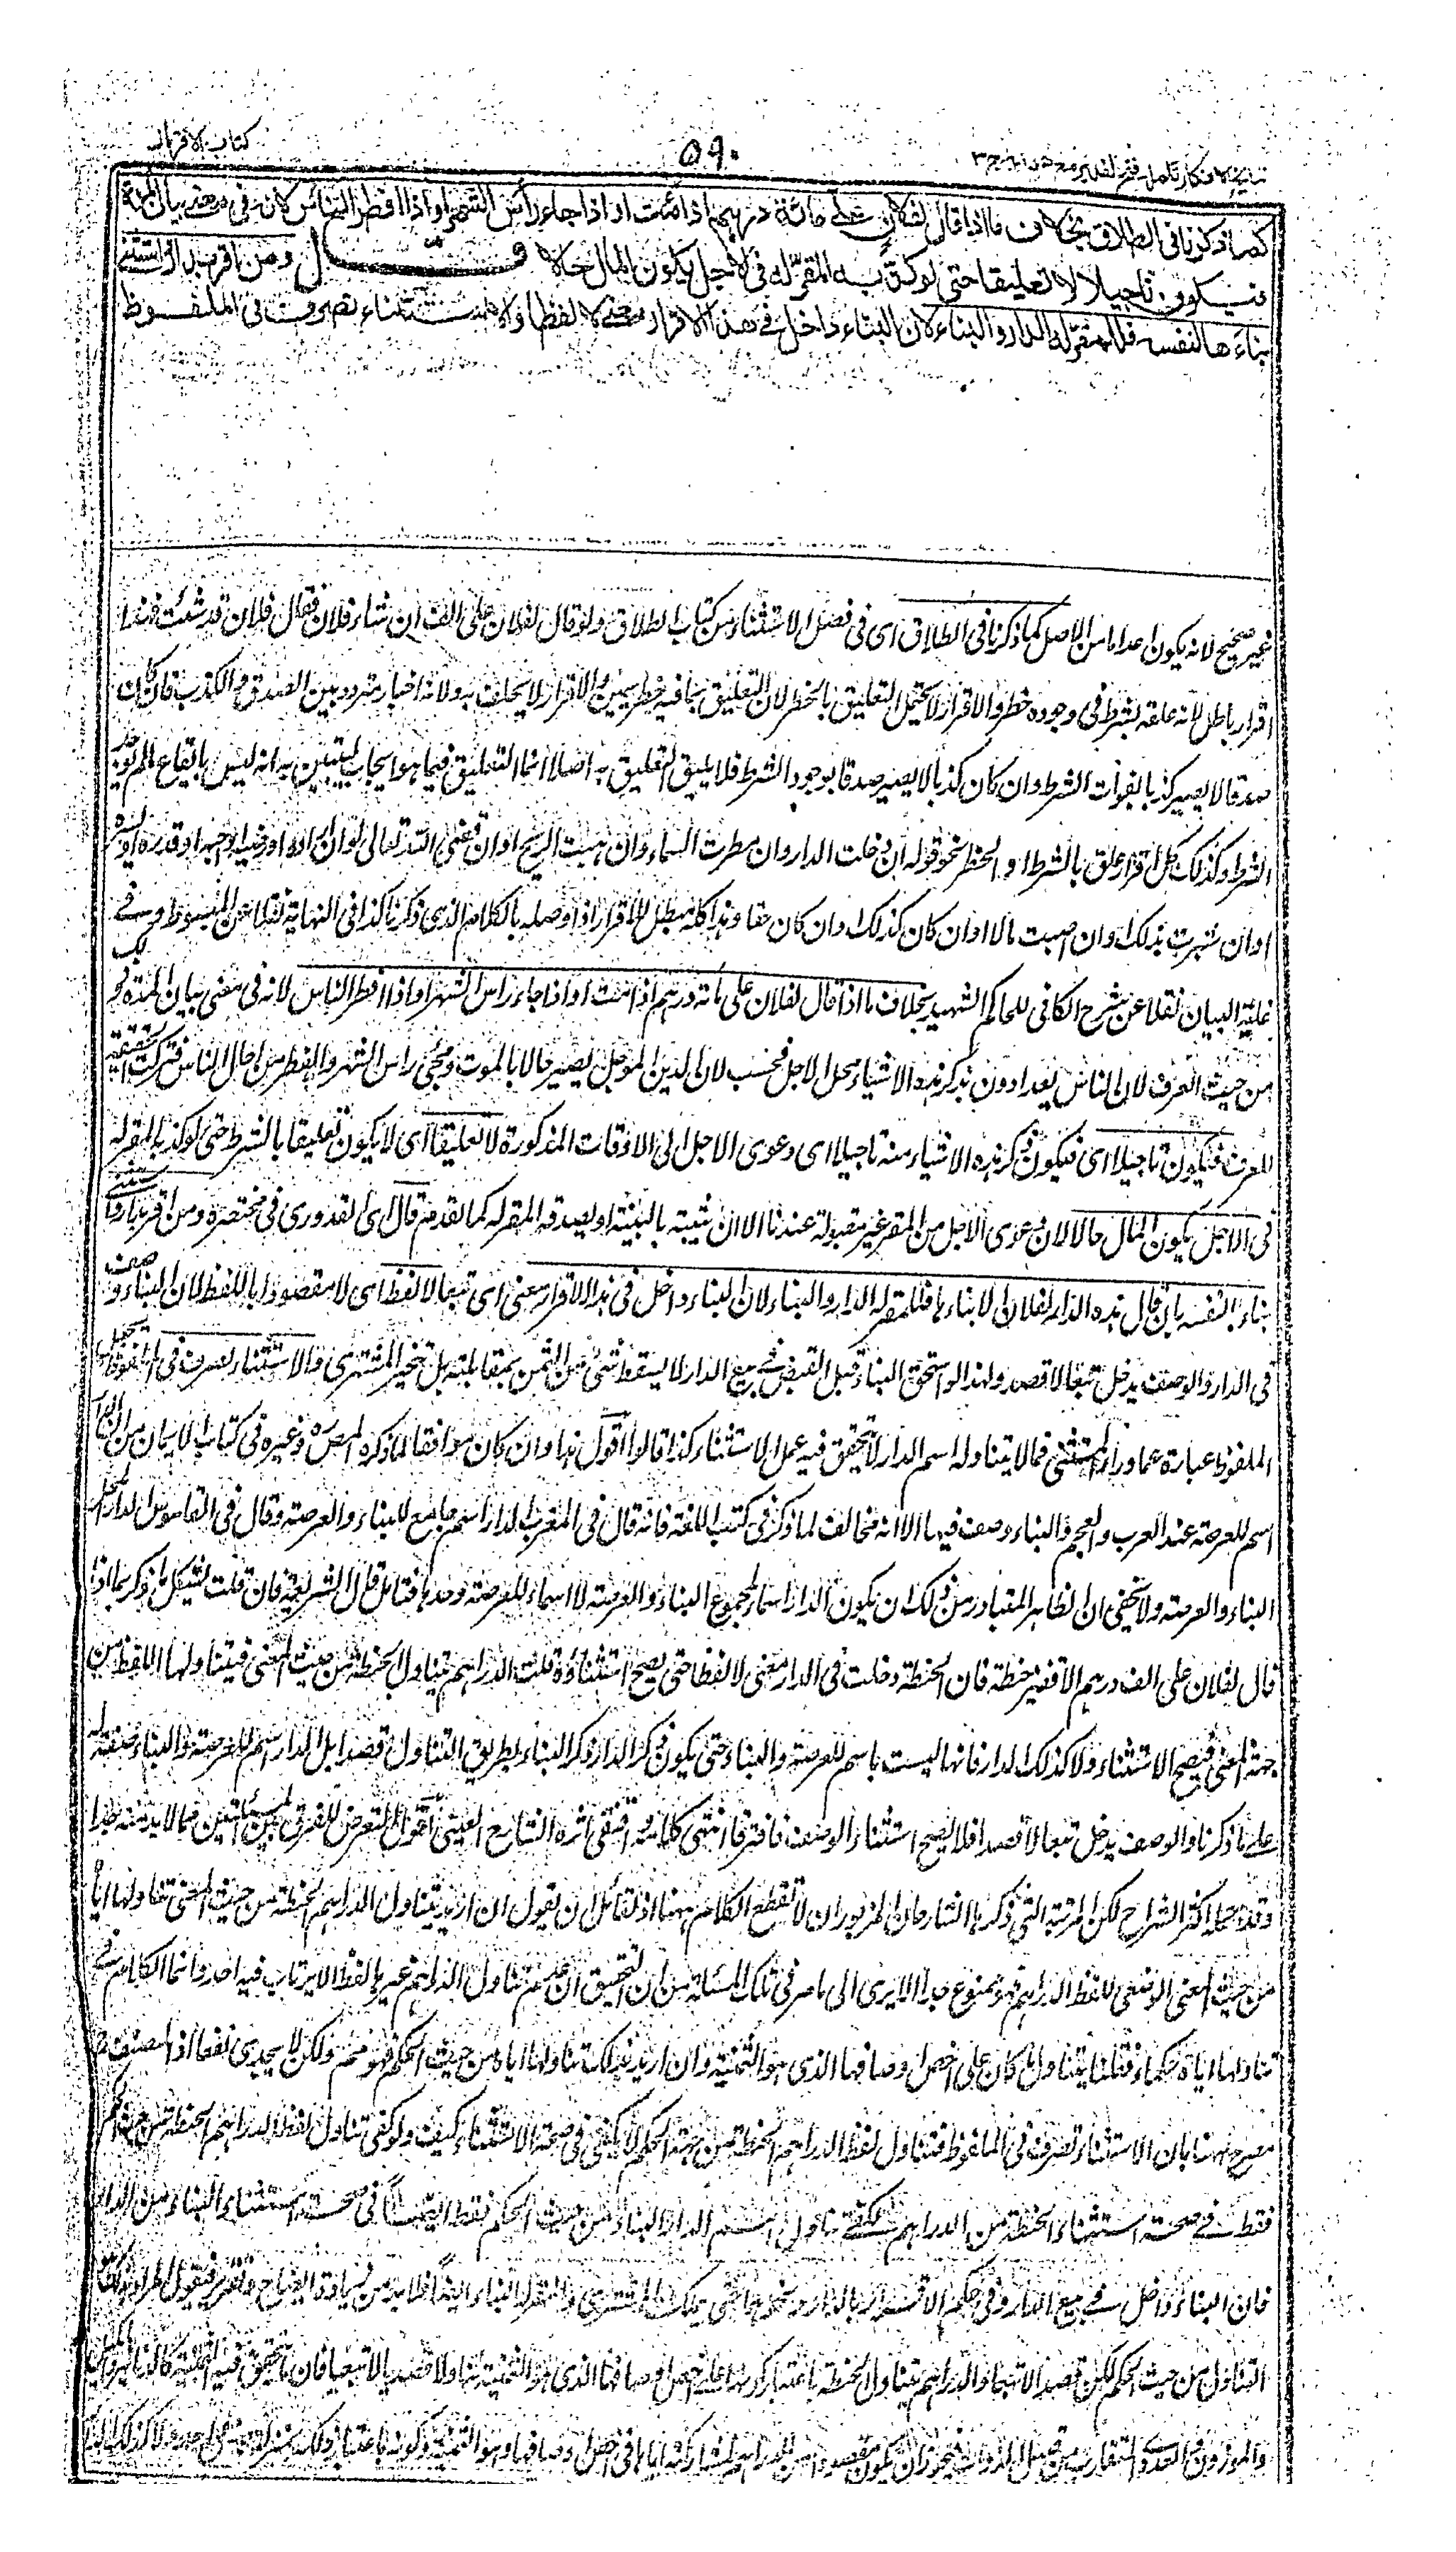 نتائج الافكار تكملة فتح القدير مع هدايه ج ٣
٥٩٠
كتاب الاقرار
كما ذكرنا فى الطلاق بخلاف ما اذا قال لفلان على مائة درهم اذا مت او اذا جاء رأس الشهر او اذا افطر الناس لانه فى معنى بيان المدة
فيكون تاجيلا لا تعليقا حتى لو كذبه المقر له فى الاجل يكون المال حالا قال ومن اقر بدار واستثنى
بناءها لنفسه فللمقر له الدار والبناء لان البناء داخل فى هذا الاقرار معنى لا لفظا والاستثناء تصرف فى الملفوظ
غير صحيح لانه يكون اعداما من الاصل كما ذكرنا فى الطلاق اى فى فصل الاستثناء من كتاب الطلاق ولو قال لفلان على الف ان شاء فلان فقال فلان قد شئت فهذا
اقرار باطل لانه علقه بشرط فى وجوده خطر والاقرار لا يحتمل التعليق بالخطر لان التعليق بما فيه خطر يمين والاقرار لا يحلف به ولانه اخبار متردد بين الصدق والكذب فان كان
صدقا لا يصير كذبا بفوات الشرط وان كان كذبا لا يصير صدقا بوجود الشرط فلا يليق التعليق به اصلا انما التعليق فيما هو ايجاب ليتبين به انه ليس بايقاع ما لم يوجد
الشرط وكذلك كل اقرار علق بالشرط او الخطر نحو قوله ان دخلت الدار وان مطرت السماء وان هبت الريح او ان قضى الله تعالى او ان اراده او رضيه او احبه او قدره او يسره
او ان بشرت بذلك وان اصبت مالا او ان كان كذلك وان كان حقا وهذا كله مبطل للاقرار اذا وصله بالكلام الذى ذكرنا كذا فى النهاية نقلا عن المبسوط وفى
غاية البيان نقلا عن شرح الكافى للحاكم الشهيد بخلاف ما اذا قال لفلان على مائة درهم اذا مت او اذا جاء راس الشهر او اذا افطر الناس لانه فى معنى بيان المدة
من حيث العرف لان الناس يعتادون بذكر هذه الاشياء محل الاجل فحسب لان الدين المؤجل يصير حالا بالموت ومجئ راس الشهر والفطر من آجال الناس فتركت الحقيقة
للعرف فيكون تاجيلا اى فيكون ذكر هذه الاشياء منه تاجيلا اى دعوى الاجل الى الاوقات المذكورة لا تعليقا اى لا يكون تعليقا بالشرط حتى لو كذبه المقر له
فى الاجل يكون المال حالا لان دعوى الاجل من المقر غير مقبولة عندنا الا ان يثبته بالبينة او يصدقه المقر له كما تقدم قال اى القدورى فى مختصره ومن اقر بدار واستثنى
بناءها لنفسه بان قال هذه الدار لفلان الا بناءها فللمقر له الدار والبناء لان البناء داخل فى هذا الاقرار معنى اى تبعا لا لفظا اى لا مقصودا باللفظ لان البناء وصف
فى الدار والوصف يدخل تبعا لا قصدا ولهذا لو استحق البناء قبل القبض فى بيع الدار لا يسقط شئ من الثمن بمقابلته بل يتخير المشترى والاستثناء تصرف فى الملفوظ
الملفوظ عبارة عما وراء المستثنى فما لا يتناوله اسم الدار لا يتحقق فيه عمل الاستثناء كذا قالوا اقول هذا وان كان موافقا لما ذكره المصره وغيره فى كتاب الايمان من ان الدار
اسم للعرصة عند العرب والعجم والبناء وصف فيها الا انه مخالف لما ذكر فى كتب اللغة فانه قال فى المغرب الدار اسم جامع للبناء والعرصة وقال فى القاموس الدار المحل
البناء والعرصة ولا يخفى ان الظاهر المتبادر من ذلك ان يكون الدار اسما لمجموع البناء والعرصة لا اسما للعرصة وحدها فتامل قال الشريعة فان قلت يشكل بما ذكر ما اذا
قال لفلان على الف درهم الا قفيز حنطة فان الحنطة دخلت فى الدار معنى لا لفظا حتى يصح استثناؤه قلت الدراهم تتناول الحنطة من حيث المعنى فيتناولها اللفظ من
جهة المعنى فيصح الاستثناء ولا كذلك الدار فانها ليست باسم للعرصة والبناء حتى يكون ذكر الدار ذكر البناء بطريق التناول قصدا بل الدار اسم للعرصة والبناء صفة له
على ما ذكرنا والوصف يدخل تبعا لا قصدا فلا يصح استثناء الوصف فافترقا انتهى كلامه واقتفى اثره الشارح العينى اقول التعرض للفرق بين المسئلتين مما لا بد منه جدا
وقد اهمله اكثر الشراح لكن المرتبة التى ذكرها الشارحان المزبوران لا تقطع الكلام ههنا اذ لقائل ان يقول ان اريد بتناول الدراهم الحنطة من حيث المعنى تناولها اياها
من حيث المعنى الوضعى للفظ الدراهم فهو ممنوع جدا الا يرى الى ما مر فى تلك المسئلة من ان التحقيق ان عدم تناول الدراهم غيرها لفظا لا يرتاب فيه احد وانما الكلام فى
تناولها اياه حكما فقلنا يتناول ما كان على اخص اوصافها الذى هو الثمنية وان اريد بذلك تناولها اياه من حيث الحكم فهو مسلم ولكن لا يجدى نفعا اذ المصنف
مصرح ههنا بان الاستثناء تصرف فى الملفوظ فتناول لفظ الدراهم الحنطة من جهة الحكم لا يكفى فى صحة الاستثناء كيف ولو كفى تناول لفظ الدراهم الحنطة من حيث الحكم
فقط فى صحة استثناء الحنطة من الدراهم لكفى تناول اسم الدار البناء من حيث الحكم فقط ايضا فى صحة استثناء البناء من الدار
فان البناء داخل فى بيع الدار وفى حكم الاقرار بالدار ونحوها حتى يملك المشترى والمقر له البناء ايضا فلا بد من زيادة ايضاح وتقرير فنقول المراد
التناول من حيث الحكم لكن قصدا لا تبعا والدراهم تتناول الحنطة باعتبار كونها على اخص اوصافها الذى هو الثمنية تناولا قصديا لا تبعيا فان ما يتحقق فيه الثمنية كالدنانير والمكيل
والموزون والعددى المتقارب من قبيل الذوات فيجوز ان يكون مقصودا من الدراهم لمشاركته اياها فى اخص اوصافها وهو الثمنية